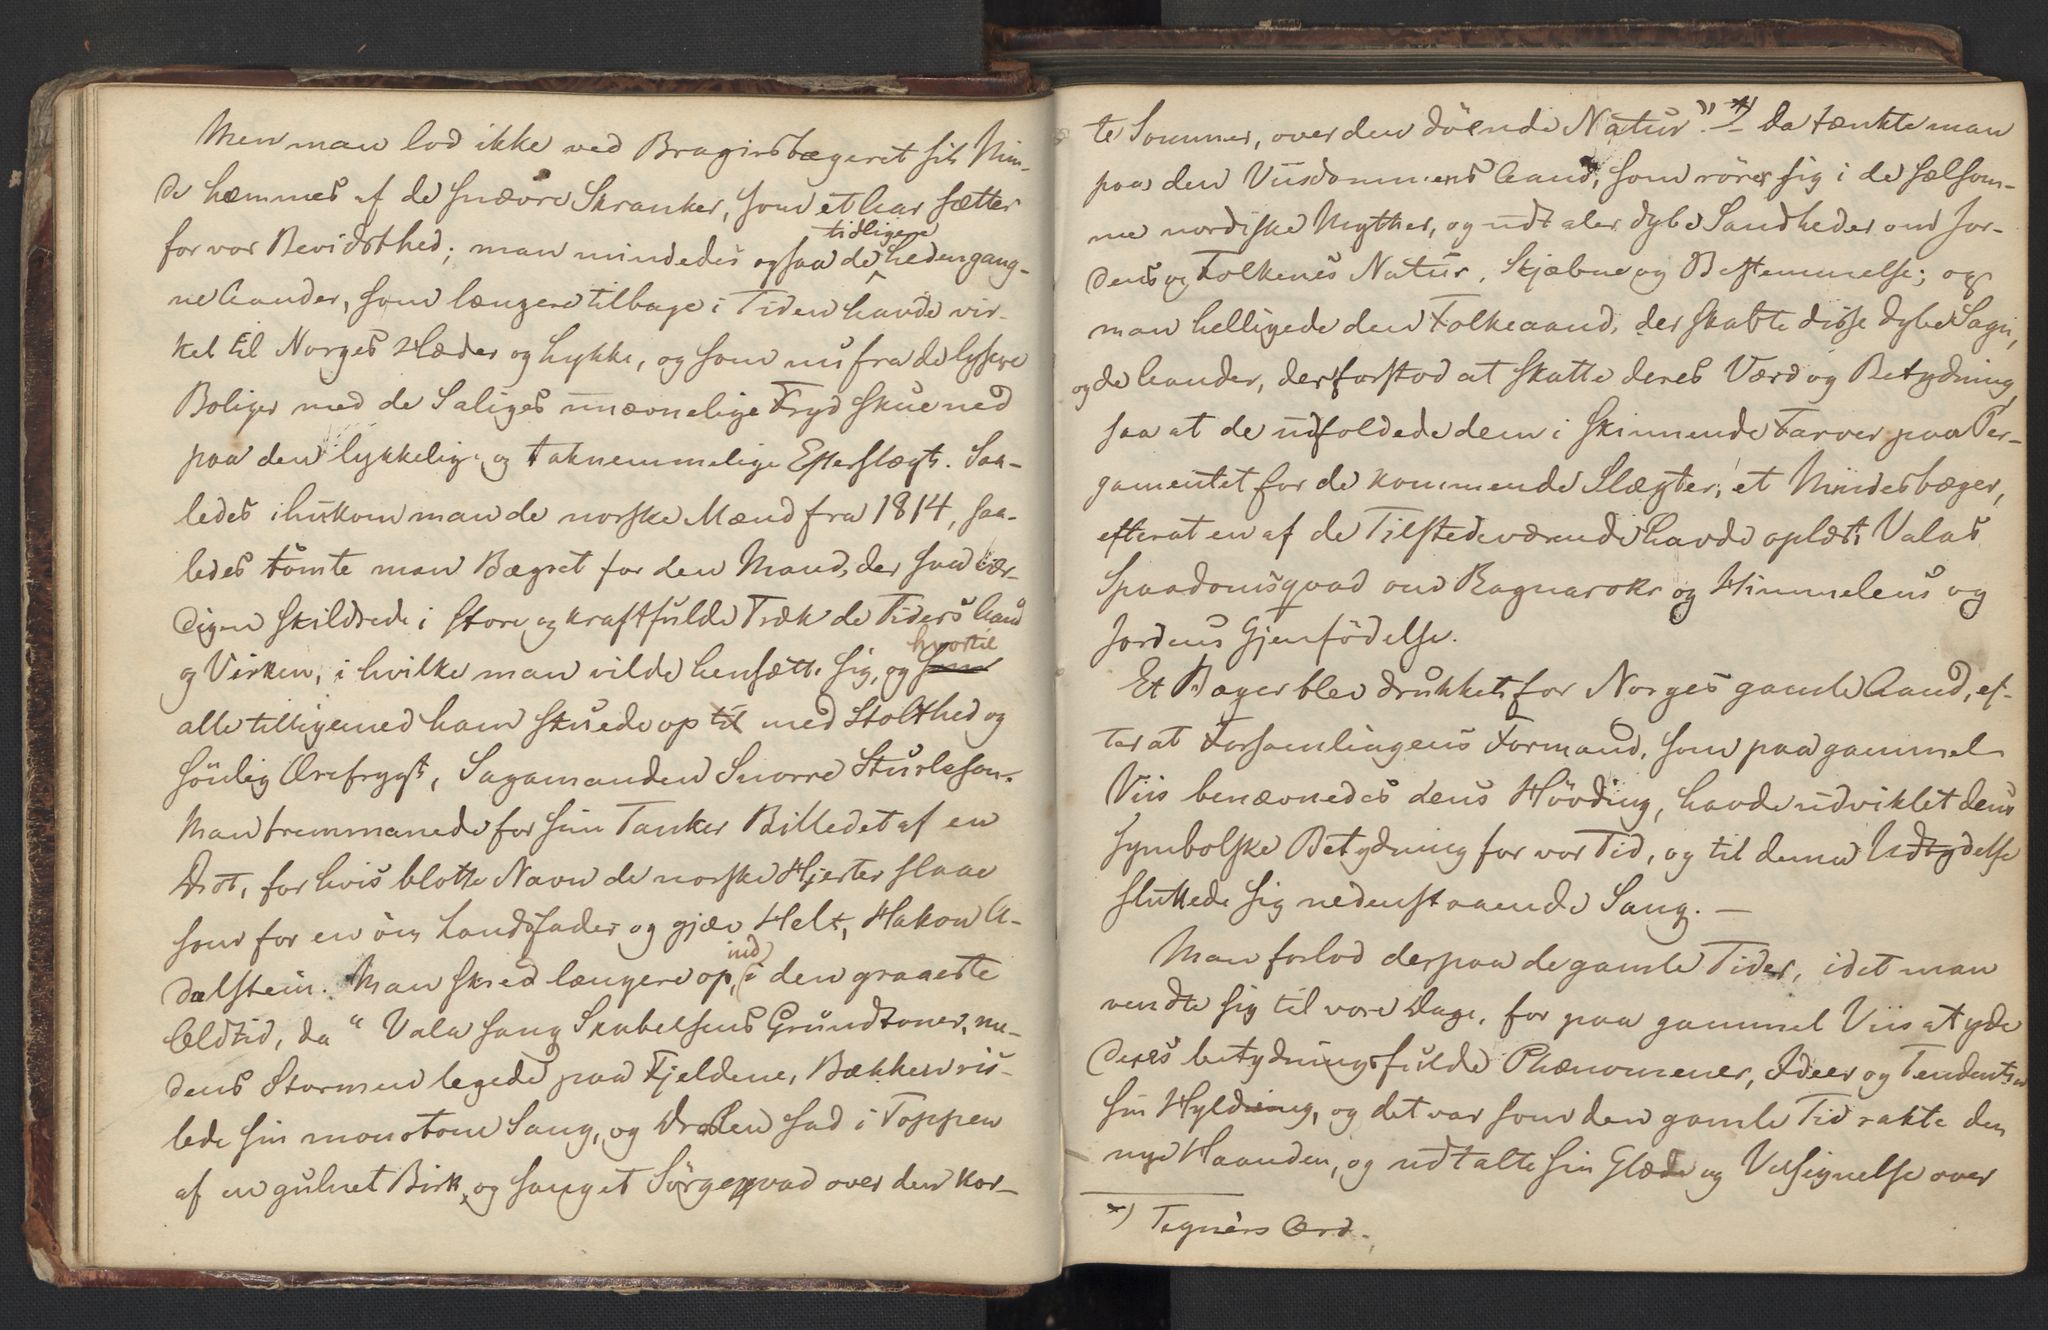 Men man lod ikke ved Bragirsbægeret sit Min-
de hæmmes af de snævre Skranker, som et Aar sætter
for vor Bevidsthed; man mindedes ogsaa de tidligere hedengang-
ne Aander, som længere tilbage i Tiden havde vir-
ket til Norges Hæder og Lykke, og som nu fra de lysere
Boliger med de Saliges unævnelige Fryd skue ned
paa den lykkelige og taknemmelige Efterslægt. Saa-
ledes ihukom man de norske Mænd fra 1814, saa-
ledes tömte man Bægret for den Mand, der saa vær-
digen skildrede i store og kraftfulde Træk de Tiders Aand
og Virken, i hvilke man vilde hensætte sig, og som hvortil
alle tilligemed ham skuede op til med Stolthed og
sönlig Ærefrygt, Sagamanden Snorre Sturleson.
Man fremmanede for sine Tanker Billedet af en
Drot, for hvis blotte Navn de norske Hjerter slaae
som for en öm Landsfader og gjæv Helt, Hakon A-
dalstein. Man skred længere op, ind i den graaeste
Oldtid, da "Vala sang Skabelsens Grundtoner, me-
dens Stormen legede paa Fjeldene, Bækken ris-
lede sin monotone Sang, og Droslen sad i Toppen
af en gulnet Birk, og sang et Sörgeqvad over den kor-
te Sommer, over den döende Natur." *) – Da tænkte man
paa den Viisdommens Aand, som rörer sig i de sælsom-
me nordiske Myther, og udtaler dybe Sandheder om Jor-
dens og Folkenes Natur, Skjæbne og Bestemmelse; og
man helligede den Folkeaand, der skabte disse dybe Sagn,
og de Aander, der forstod at skatte deres Værd og Betydning,
saa at de udfoldede dem i skinnende Farver paa Per-
gamentet for de kommende Slægter, et Mindesbæger,
efterat en af de Tilstedeværende havde oplæst Valas
Spaadomsqvad om Ragnarokr og Himmelens og
Jordens Gjenfödelse.
Et Bæger blev drukket for Norges gamle Aand, ef-
terat Forsamlingens Formand, som paa gammel
Viis benævnedes dens Hövding, havde udviklet dens
symbolske Betydning for vor Tid, og til denne Udtydelse
sluttede sig nedenstaaende Sang. –
Man forlod derpaa de gamle Tider, idet man
vendte sig til vore Dage, for paa gammel Viis at yde
deres betydningsfulde Phænomener, Ideer og Tendentser
sin Hyldning, og det var som den gamle Tid rakte den
nye Haanden, og udtalte sin Glæde og Velsignelse over
*) Tegnérs Ord.